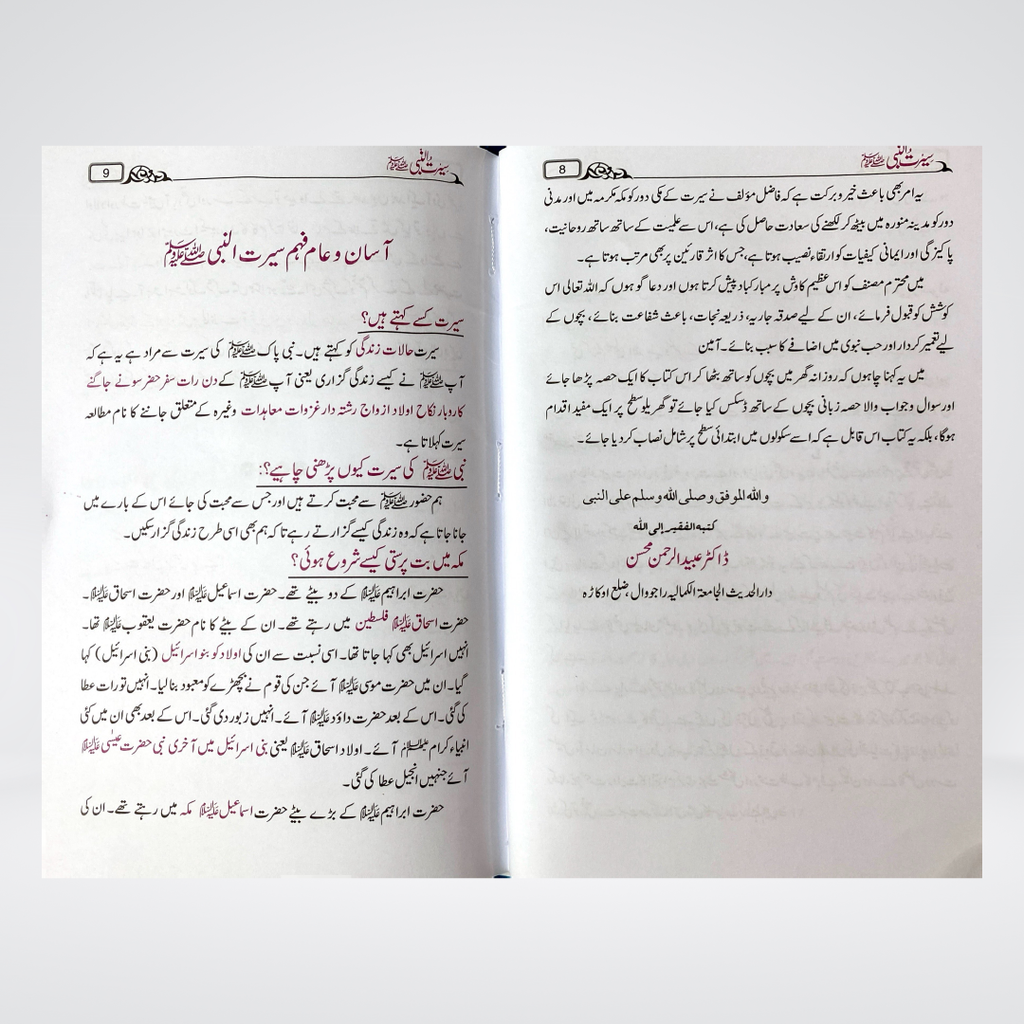 سیرت النبی ﷺ
8
یہ امر بھی باعث خیر و برکت ہے کہ فاضل مؤلف نے سیرت کے مکی دور کو مکہ مکرمہ میں اور مدنی
دور کو مدینہ منورہ میں بیٹھ کر لکھنے کی سعادت حاصل کی ہے، اس سے علمیت کے ساتھ ساتھ روحانیت،
پاکیزگی اور ایمانی کیفیات کو ارتقاء نصیب ہوتا ہے، جس کا اثر قارئین پر بھی مرتب ہوتا ہے۔
میں محترم مصنف کو اس عظیم کاوش پر مبارکباد پیش کرتا ہوں اور دعا گو ہوں کہ اللہ تعالی اس
کوشش کو قبول فرمائے، ان کے لیے صدقہ جاریہ، ذریعہ نجات، باعث شفاعت بنائے، بچوں کے
لیے تعمیر کردار اور حب نبوی میں اضافے کا سبب بنائے۔ آمین
میں یہ کہنا چاہوں کہ روزانہ گھر میں بچوں کو ساتھ بٹھا کر اس کتاب کا ایک حصہ پڑھا جائے
اور سوال و جواب والا حصہ زبانی بچوں کے ساتھ ڈسکس کیا جائے تو گھریلو سطح پر ایک مفید اقدام
ہوگا، بلکہ یہ کتاب اس قابل ہے کہ اسے سکولوں میں ابتدائی سطح پر شامل نصاب کر دیا جائے۔
واللہ الموفق وصلی اللہ وسلم علی النبی
کتبہ الفقیر إلی اللہ
ڈاکٹر عبید الرحمن محسن
دار الحدیث الجامعۃ الکمالیہ راجووال، ضلع اوکاڑہ
سیرت النبی ﷺ
9
آسان و عام فہم سیرت النبی ﷺ
سیرت کسے کہتے ہیں؟
سیرت حالات زندگی کو کہتے ہیں۔ نبی پاک ﷺ کی سیرت سے مراد ہے یہ ہے کہ
آپ ﷺ نے کیسے زندگی گزاری یعنی آپ ﷺ کے دن رات سفر حضر سونے جاگنے
کاروبار نکاح اولاد ازواج رشتہ دار غزوات معاہدات وغیرہ کے متعلق جاننے کا نام مطالعہ
سیرت کہلاتا ہے۔
نبی ﷺ کی سیرت کیوں پڑھنی چاہیے؟:
ہم حضور ﷺ سے محبت کرتے ہیں اور جس سے محبت کی جائے اس کے بارے میں
جانا جاتا ہے کہ وہ زندگی کیسے گزارتے رہے تا کہ ہم بھی اسی طرح زندگی گزار سکیں۔
مکہ میں بت پرستی کیسے شروع ہوئی؟
حضرت ابراہیم علیہ السلام کے دو بیٹے تھے۔ حضرت اسماعیل علیہ السلام اور حضرت اسحاق علیہ السلام۔
حضرت اسحاق علیہ السلام فلسطین میں رہتے تھے۔ ان کے بیٹے کا نام حضرت یعقوب علیہ السلام تھا۔
انہیں اسرائیل بھی کہا جاتا تھا۔ اسی نسبت سے ان کی اولاد کو بنو اسرائیل (بنی اسرائیل) کہا
گیا۔ ان میں حضرت موسی علیہ السلام آئے جن کی قوم نے بچھڑے کو معبود بنا لیا۔ انہیں تورات عطا
کی گئی۔ اس کے بعد حضرت داؤد علیہ السلام آئے۔ انہیں زبور دی گئی۔ اس کے بعد بھی ان میں کئی
انبیاء کرام علیہم السلام آئے۔ اولاد اسحاق علیہ السلام یعنی بنی اسرائیل میں آخری نبی حضرت عیسٰی علیہ السلام
آئے جنہیں انجیل عطا کی گئی۔
حضرت ابراہیم علیہ السلام کے بڑے بیٹے حضرت اسماعیل علیہ السلام مکہ میں رہتے تھے۔ ان کی